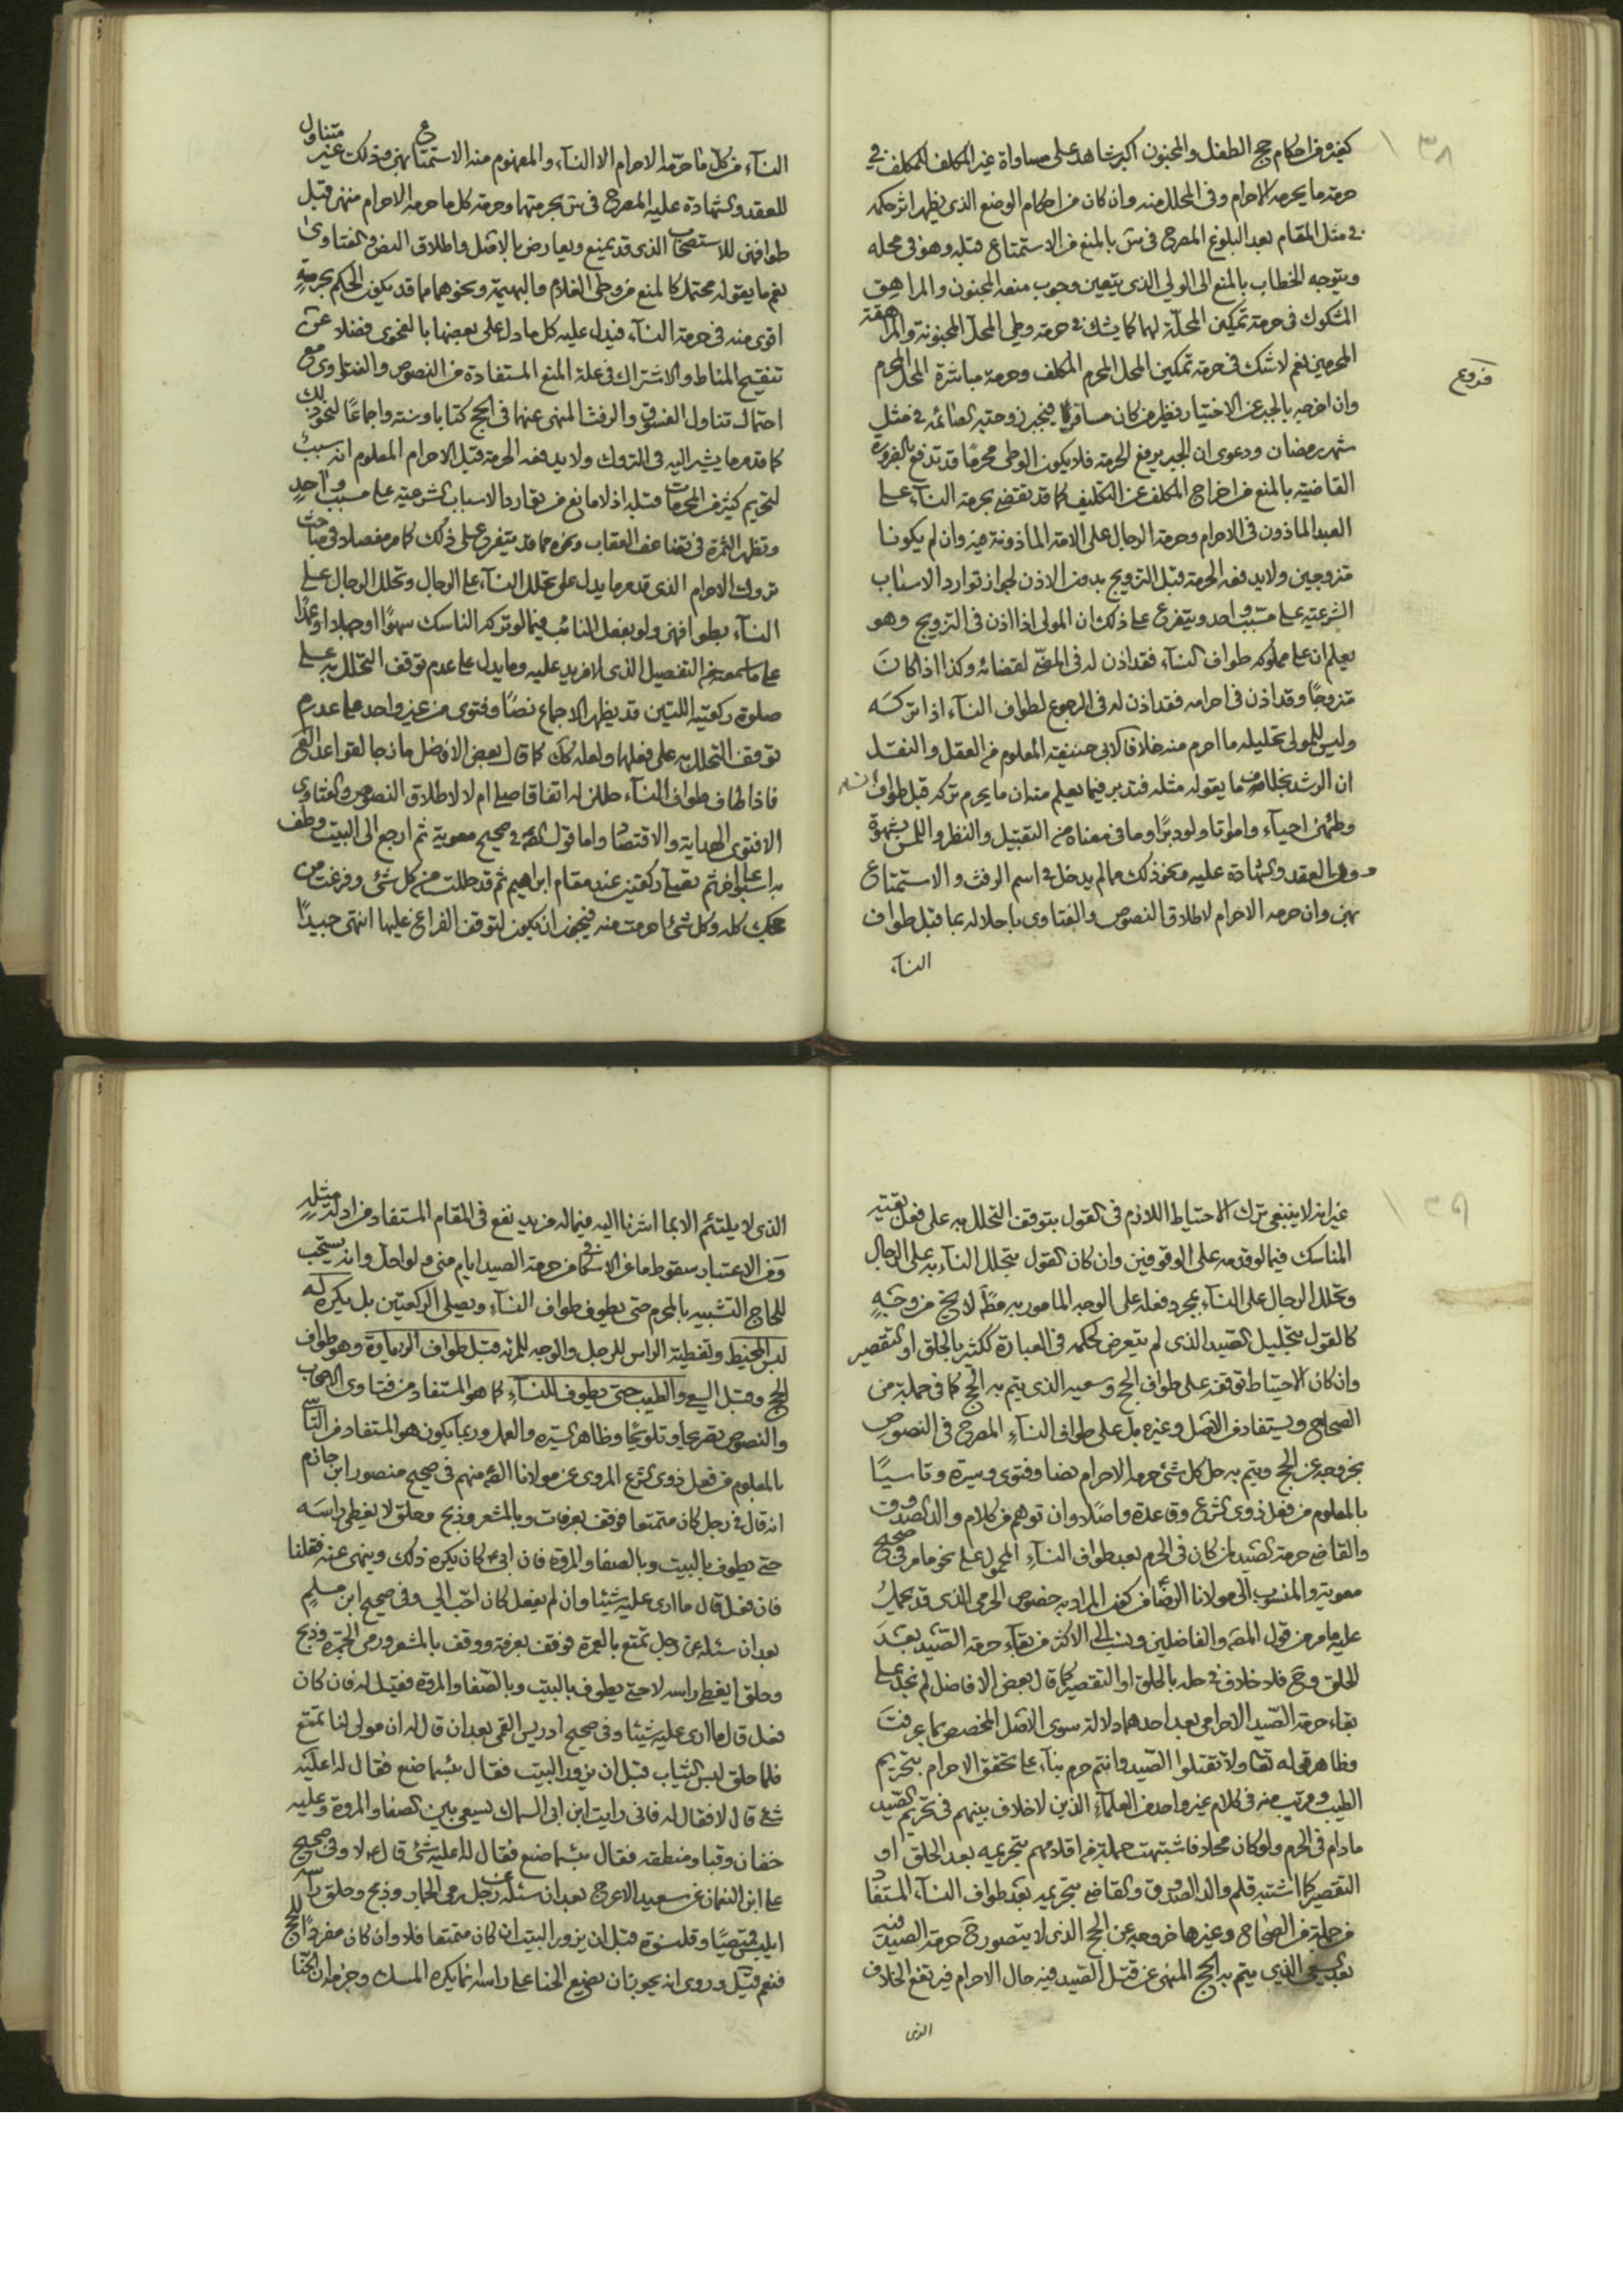 ٣٨
كيف وفي احكام حج الطفل والمجنون اكبر شاهد على مساواة غير المكلف للمكلف في
حرمة ما يحرمه الاحرام وفي المحلل منه وان كان من احكام الوضع الذي يظهر اثر حكمه
في مثل المقام بعد البلوغ المصرح في بالمنع من الاستمتاع قبله وهو في محله
ويتوجه الخطاب بالمنع الى الولي الذي يتعين وجوب منعه المجنون والمراهق
المشكوك في حرمة تمكين المحلة لهما كما يشك في حرمة وطي المحل المجنونة والمراهقة
المحرمين نعم لا شك في حرمة تمكين المحل المحرم المكلف وحرمة مباشرة المحل المحرم
فروع
وان اخرجه بالجبر عن الاختيار نظير من كان مسافرا فيجبر زوجته الصائمة في مثل
شهر رمضان ودعوى ان الجبر يرفع الحرمة فلا يكون الوطي محرما قد تدفع بالضرورة
القاضية بالمنع من اخراج المكلف عن التكليف كما قد يقتضي بحرمة النسآء على
العبد الماذون في الاحرام وحرمة الرجال على الامة الماذونة فيه وان لم يكونا
متزوجين ولا يدفعه الحرمة قبل التزويج بدون الاذن لجواز توارد الاسباب
الشرعية على مسبب واحد ويتفرع على ذلك ان المولى اذا اذن في التزويج وهو
يعلم ان على مملوكه طواف النسآء فقد اذن له في المضي لقضائه وكذا اذا كان
متزوجا وقد اذن في احرامه فقد اذن له في الرجوع لطواف النسآء اذا تركه
وليس للمولى تحليله ما احرم منه خلافا لابي حنيفة المعلوم من العقل والنقل
ان الرشد بخلاف ما يقوله مثله فتدبر فيما يعلم منه ان ما يحرم تركه قبل طوافه
وطئهن احيآء وامواتا ولو دبرا وما في معناه من التقبيل والنظر واللمس بشهوة
وفي العقد والشهادة عليه ونحو ذلك مما لم يدخل في اسم الرفث والاستمتاع
بهن وان حرمه الاحرام لاطلاق النصوص والفتاوى باحلاله بما قبل طواف
النسآء
النسآء من كل ما حرمه الاحرام الا النسآء والمفهوم منه الاستمتاع بهن وذلك غير متناول
للعقد والشهادة عليه المصرح في بحرمتهما وحرمة كل ما حرمه الاحرام منهن قبل
طوافهن للاستصحاب الذي قد يمنع ويعارض بالاصل واطلاق النص والفتاوى
نعم ما يقوله محتمل كالمنع من وطي الغلام والبهيمة ونحوهما مما قد يكون الحكم بحرمته
اقوى منه في حرمة النسآء فيدل عليه كل ما دل على بعضها بالفحوى فضلا عن
تنقيح المناط والاشتراك في علة المنع المستفادة من النصوص والفتاوى مع
احتمال تناول الفسوق والرفث المنهي عنهما في الحج كتابا وسنة واجماعا لنحو ذلك
كما قدمر ما يشير اليه في التروك ولا يدفعه الحرمة قبل الاحرام المعلوم انه سبب
لتحريم كثير من المحرمات قبله اذ لا مانع من توارد الاسباب الشرعية على مسبب واحد
وتظهر الثمرة في تضاعف العقاب ونحوه مما قد يتفرع على ذلك كما مر مفصلا في مباحث
تروك الاحرام الذي قدمر ما يدل على تحلل النسآء على الرجال وتحلل الرجال على
النسآء بطوافهن ولو بفعل النائب فيما لو تركه الناسك سهوا او جهلا او عمدا
على ما سمعته من التفصيل الذي لا مزيد عليه وما يدل على عدم توقف التحلل به على
صلوة ركعتيه اللتين قد يظهر الاجماع نصا وفتوى من غير واحد على عدم
توقف التحلل به على فعلهما ولعله كك كما قال بعض الافاضل مازجا لقواعد
فاذا طاف طواف النسآء حللن له اتفاقا صلى ام لا لاطلاق النصوص والفتاوى
الا فتوى الهداية والاقتصاد واما قول الصه في صحيح معوية ثم ارجع الى البيت وطف
به اسبوعا اخر ثم تصلي ركعتين عند مقام ابراهيم ثم قد حللت من كل شئ وفرغت من
حجك كله وكل شئ احرمت منه فيجوز ان يكون لتوقف الفراغ عليهما انتهى جيدا
٣٩
غير انه لا ينبغي ترك الاحتياط اللازم في القول بتوقف التحلل به على فعل بقية
المناسك فيما لو قدمه على الوقوفين وان كان القول بتحلل النسآء به على الرجال
وتحلل الرجال على النسآء بمجرد فعله على الوجه المامور به مط لا يخ من وجه
كالقول بتحليل الصيد الذي لم يتعرض لحكمه في العبارة ككثير بالحلق او التقصير
وان كان الاحتياط توقفه على طواف الحج وسعيه الذي يتم به الحج كما في جملة من
الصحاح ويستفاد من الاصل وغيره بل على طواف النسآء المصرح في النصوص
بخروجه عن الحج ويتم به حل كل شئ حرمه الاحرام نصا وفتوى وسيرة وتاسيا
بالمعلوم من فعل ذوي الشرع وقاعدة واصلا وان توهم من كلام والد الصدوق
والقاضي حرمة الصيد لمن كان في الحرم بعد طواف النسآء المحمول على نحو ما مر في صحيح
معوية والمنسوب الى مولانا الرضا من كون المراد به خصوص الحرمي الذي قد يحمل
عليه ما مر من قول المصه والفاضلين ونسب الى الاكثر من بقآء حرمة الصيد بعد
الحلق وح فلا خلاف في حله بالحلق او التقصير كما قال بعض الافاضل لم نجد على
بقاء حرمة الصيد الاحرامي بعد احدهما دلالة سوى الاصل المخصص بما عرفت
وظاهر قوله تعالى ولا تقتلوا الصيد وانتم حرم بنآء على تحقق الاحرام بتحريم
الطيب وقريب منه في كلام غير واحد من العلمآء الذين لا خلاف بينهم في تحريم الصيد
مادام في الحرم ولو كان محلا فاشتبهت جملة من اقلامهم بتحريمه بعد الحلق او
التقصير كما اشتبه قلم والد الصدوق والقاضي بتحريمه بعد طواف النسآء المستفاد
من جملة من الصحاح وغيرها خروجه عن الحج الذي لا يتصور ح حرمة الصيد فيه
بعد السعي الذي يتم به الحج المنهي عن قتل الصيد فيه حال الاحرام فيرتفع الخلاف
الذي
الذي لا يلتئم الا بما اشرنا اليه فيما له مزيد نفع في المقام المستفاد من ادلة مثله
وفي الاعتبار سقوط ما عن الاسكافي من حرمة الصيد ايام منى ولو احل وانه يستحب
للحاج التشبيه بالمحرم حتى يطوف طواف النسآء ويصلي الركعتين بل يكره له
لبس المخيط وتغطية الراس للرجل والوجه للمرئة قبل طواف الزيارة وهو طواف
الحج وقبل السعي والطيب حتى يطوف للنسآء كما هو المستفاد من فتاوى الاصحاب
والنصوص تصريحا وتلويحا وظاهر السيرة والعمل وربما يكون هو المستفاد من التاسي
بالمعلوم من فعل ذوي الشرع المروي عن مولانا الصه منهم في صحيح منصور ابن حازم
انه قال في رجل كان متمتعا فوقف بعرفات وبالمشعر وذبح وحلق لا يغطي راسه
حتى يطوف بالبيت وبالصفا والمروة فان ابي كان يكره ذلك وينهى عنه فقلنا
فان فعل قال ما ارى عليه شيئا وان لم يفعل كان احب الي وفي صحيح ابن مسلم
بعد ان سئله عن رجل تمتع بالعمرة فوقف بعرفة ووقف بالمشعر ورمى الجمرة وذبح
وحلق ايغطي راسه لا حتى يطوف بالبيت وبالصفا والمروة فقيل له فان كان
فعل قال ما ارى عليه شيئا وفي صحيح ادريس القمي بعد ان قال له ان مولى لنا تمتع
فلما حلق لبس الثياب قبل ان يزور البيت فقال بئسما صنع فقال له اعليه
شئ قال لا فقال له فاني رايت ابن ابي السماك يسعى بين الصفا والمروة وعليه
خفان وقبا ومنطقه فقال بئسما صنع فقال له اعليه شئ قال لا وفي صحيح
علي ابن النعمان عن سعيد الاعرج بعد ان سئله عن رجل رمى الجمار وذبح وحلق راسه
ايلبس قميصا وقلنسوة قبل ان يزور البيت ان كان متمتعا فلا وان كان مفردا للحج
فنعم قيل وروي انه يجوز ان يضع الحنا على راسه انما يكره المسك وضربه ان الحنا